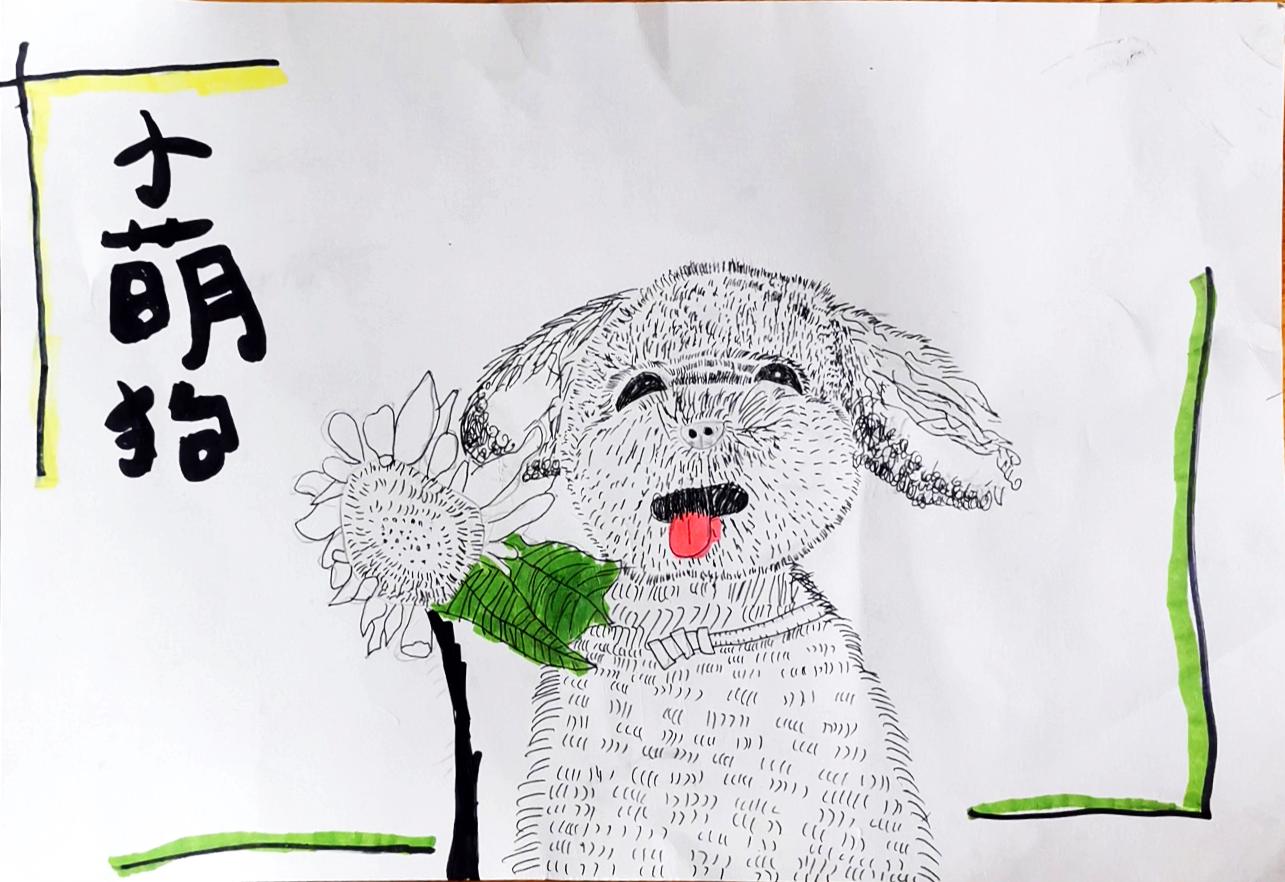 小萌狗